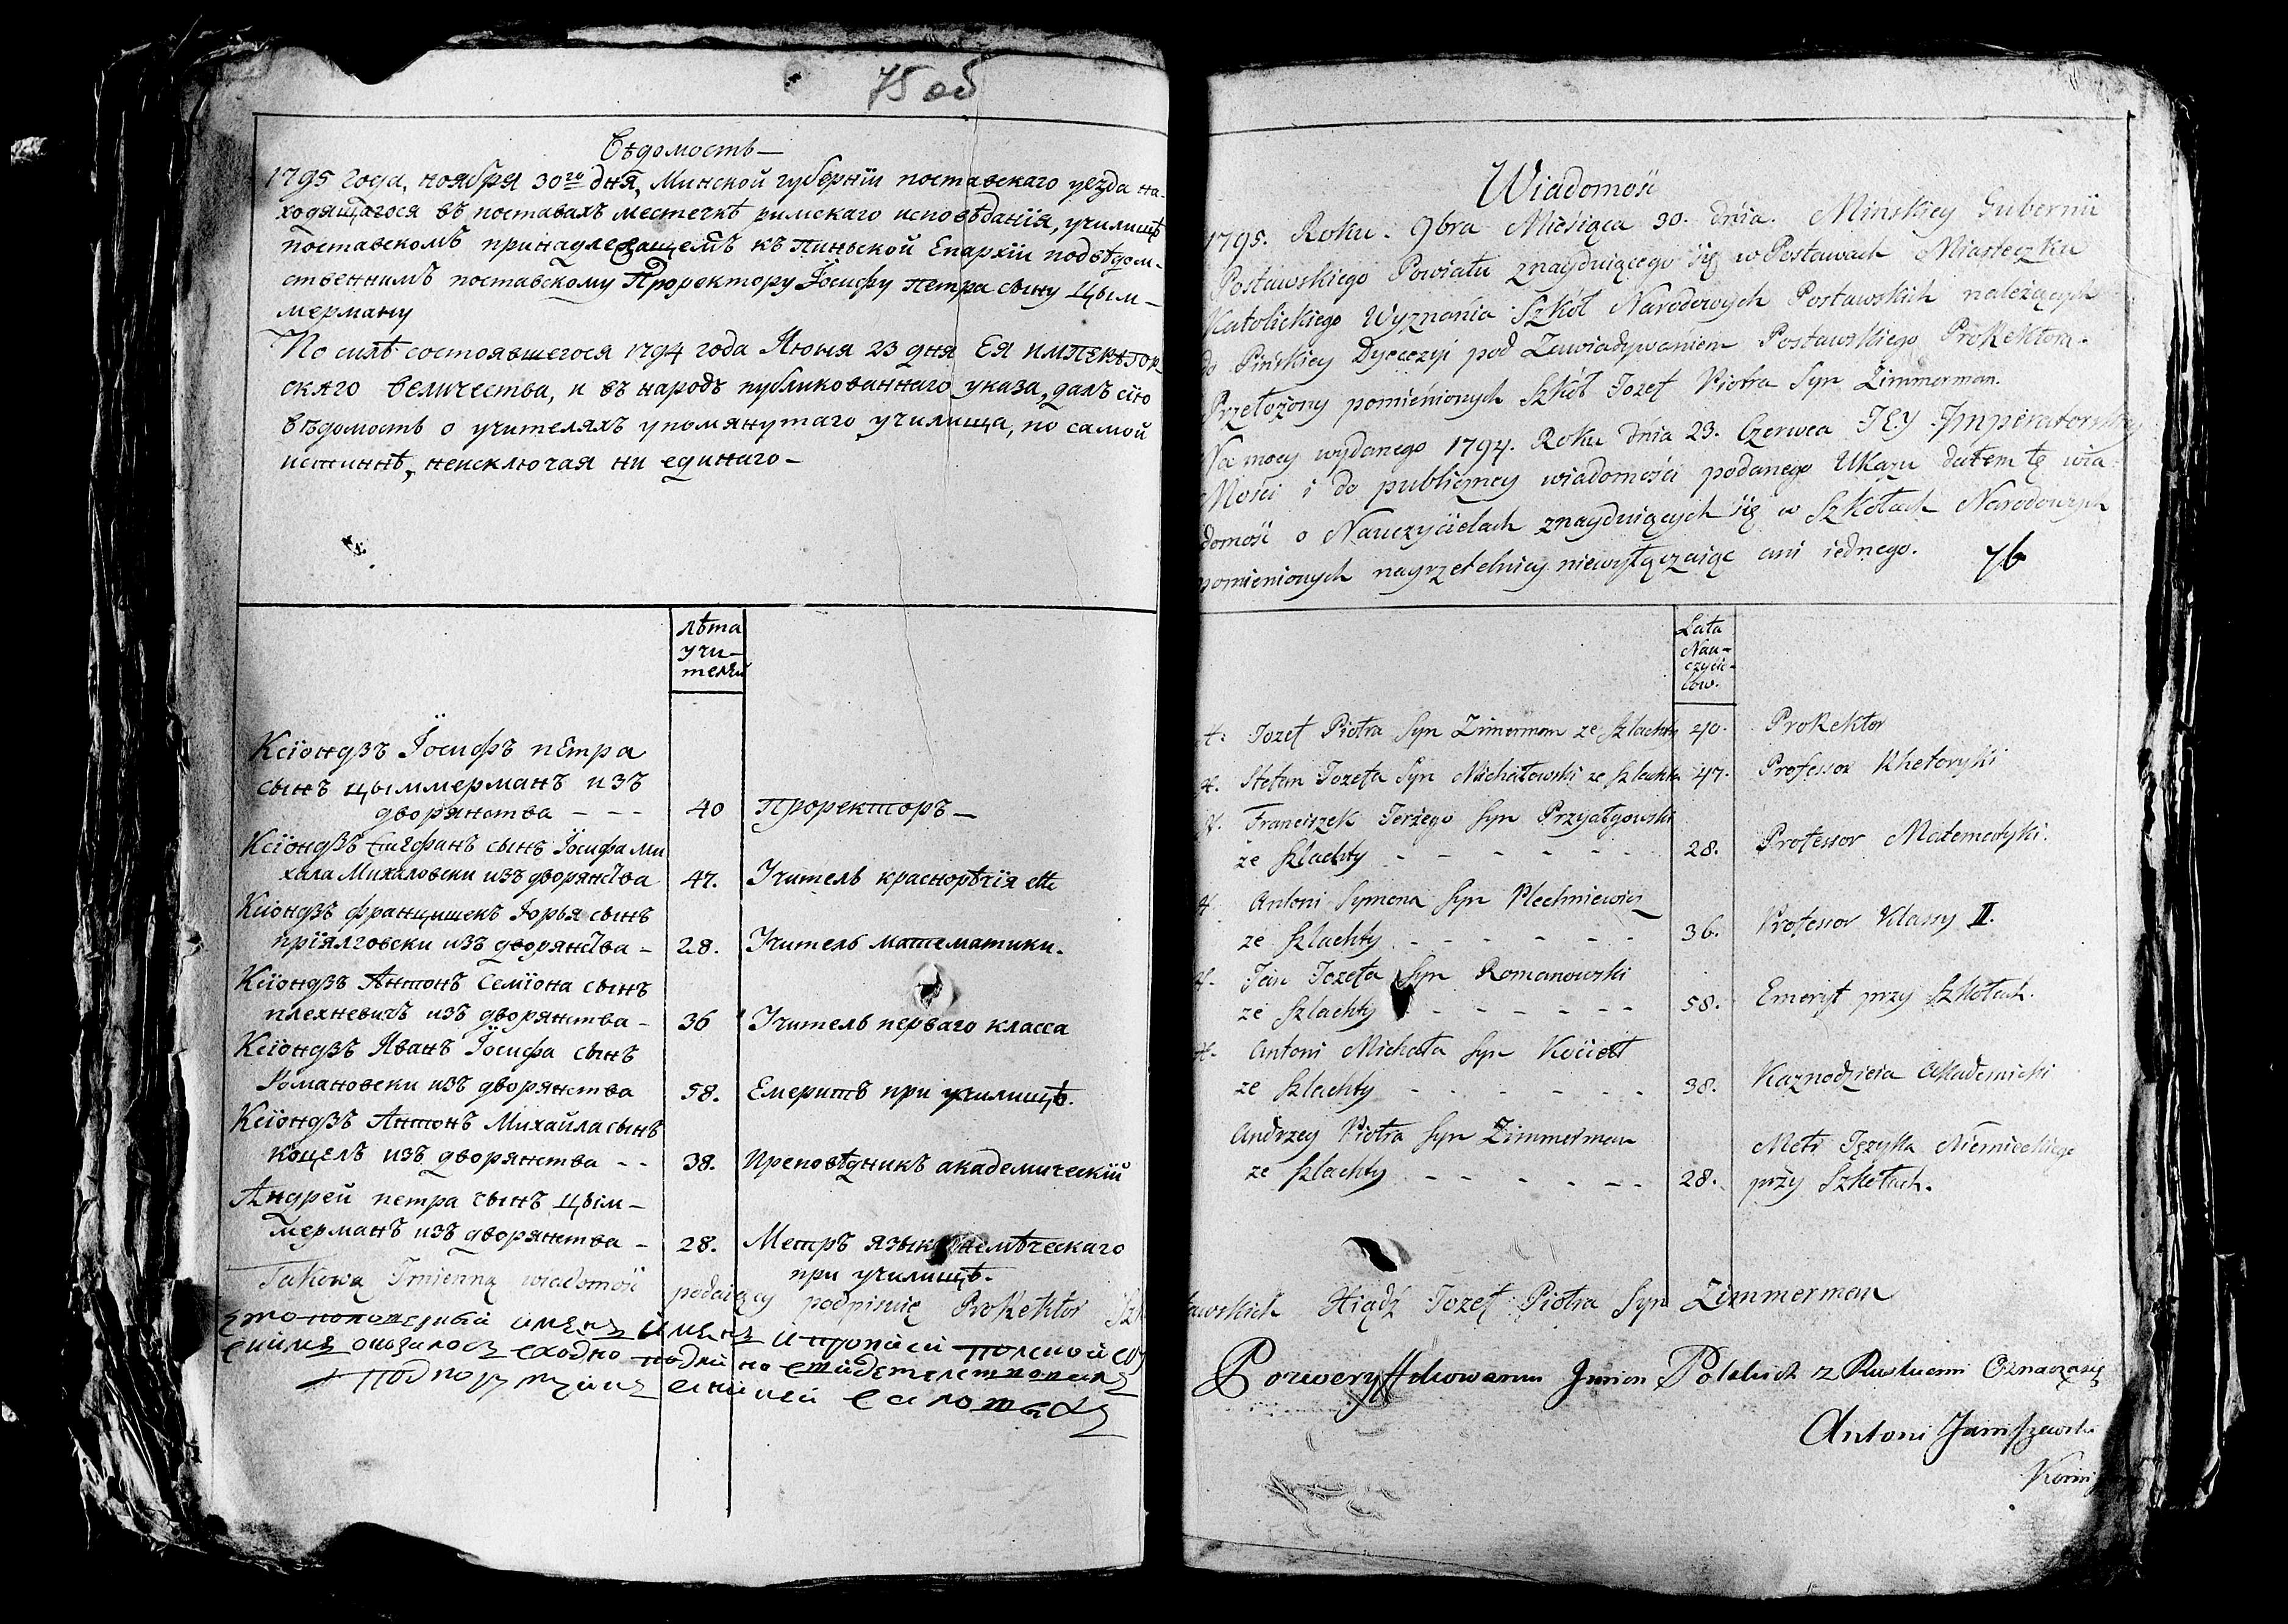 75 об
Вѣдомость
1795 года, ноября 30го дня, Минской губернїи поставскаго уезда на-
ходящагося въ поставахъ местечкѣ римскаго исповѣданїя, училищѣ
поставскомъ принадлежащемъ къ Пинской Епархїи подвѣдом-
ственнимъ поставскому Проректору Їосифу петра сыну Цым-
мерману
По силѣ состоявшегося 1794 года Июня 23 дня Ея импЕратор-
скаго величества, и въ народъ публикованнаго указа, далъ сїю
вѣдомость о учителяхъ упомянутаго училища, по самой
истиннѣ, неисключая ни единаго
лѣта
учи-
телей
Ксїондзъ Їосифъ пЕтра
сынъ цыммерманъ изъ
дворянства - - - 40 Проректоръ
Ксїондзъ Стефанъ сынъ Їосифа ми
хала Михаловски изъ дворянства 47. Учитель краснорѣчїя
Ксїондзъ францишекъ Їорья сынъ
прїялговски изъ дворянства - 28. Учитель математики.
Ксїондзъ Антонъ Семїона сынъ
плехневичъ изъ дворянства - 36 Учитель перваго класса
Ксїондзъ Иванъ Їосифа сынъ
Романовски изъ дворянства 58. Емеритъ при училищѣ.
Ксїондзъ Антонъ Михайла сынъ
коцелъ изъ дворянства - - 38. Преповѣдникъ академическїй
Андрей петра сынъ Цым-
мерманъ изъ дворянства - 28. Метръ языка немѣческаго
при училищѣ.
Takową Imienną wiadomość podaiący podpisuię ProRektor
Wiadomość
1795. Roku 9bra Miesiąca 30. dnia. Mińskiey Gubernii
Postawskiego Powiatu znayduiącego się w Postawach Miasteczku
Katolickiego Wyznania Szkół Narodowych Postawskich należących
do Pińskiey Dyecezyi pod Zawiadywaniem Postawskiego ProRektora.
Przełożony pomienionych Szkół Jozef Piotra Syn Zimmerman.
Na mocy wydanego 1794. Roku dnia 23. Czerwca JEY Imperatorskiey
Mości i do publiczney wiadomości podanego Ukazu dałem tę wia-
domość o Nauczycielach znayduiących się w Szkołach Narodowych
pomienionych nayrzetelniey niewyłączaiąc ani iednego. 76
Lata
Nau-
czycie-
lów.
X. Jozef Piotra Syn Zimerman ze Szlachty 40. ProRektor
X. Stefan Jozefa Syn Michałowski ze Szlachty 47. Professor Rhetoryki
X. Franciszek Jerzego Syn Przyałgowski
ze Szlachty - - - - - - 28. Professor Matematyki.
X. Antoni Symona Syn Plechniewicz
ze Szlachty - - - - - - 36. Professor Klassy II.
X. Jan Jozefa Syn Romanowski
ze Szlachty - - - - - - 58. Emeryt przy Szkołach.
X. Antoni Michała Syn Kocieł
ze Szlachty - - - - - - 38. Kaznodzieia Akademicki
Andrzey Piotra Syn Zimmerman Metr Języka Niemieckiego
ze Szlachty - - - - - - 28. przy Szkołach.
Xiądz Jozef Piotra Syn Zimmerman
Pozweryfikowaniu Imion Polskich z Ruskiemi Oznacza się
Antoni Janiszewski